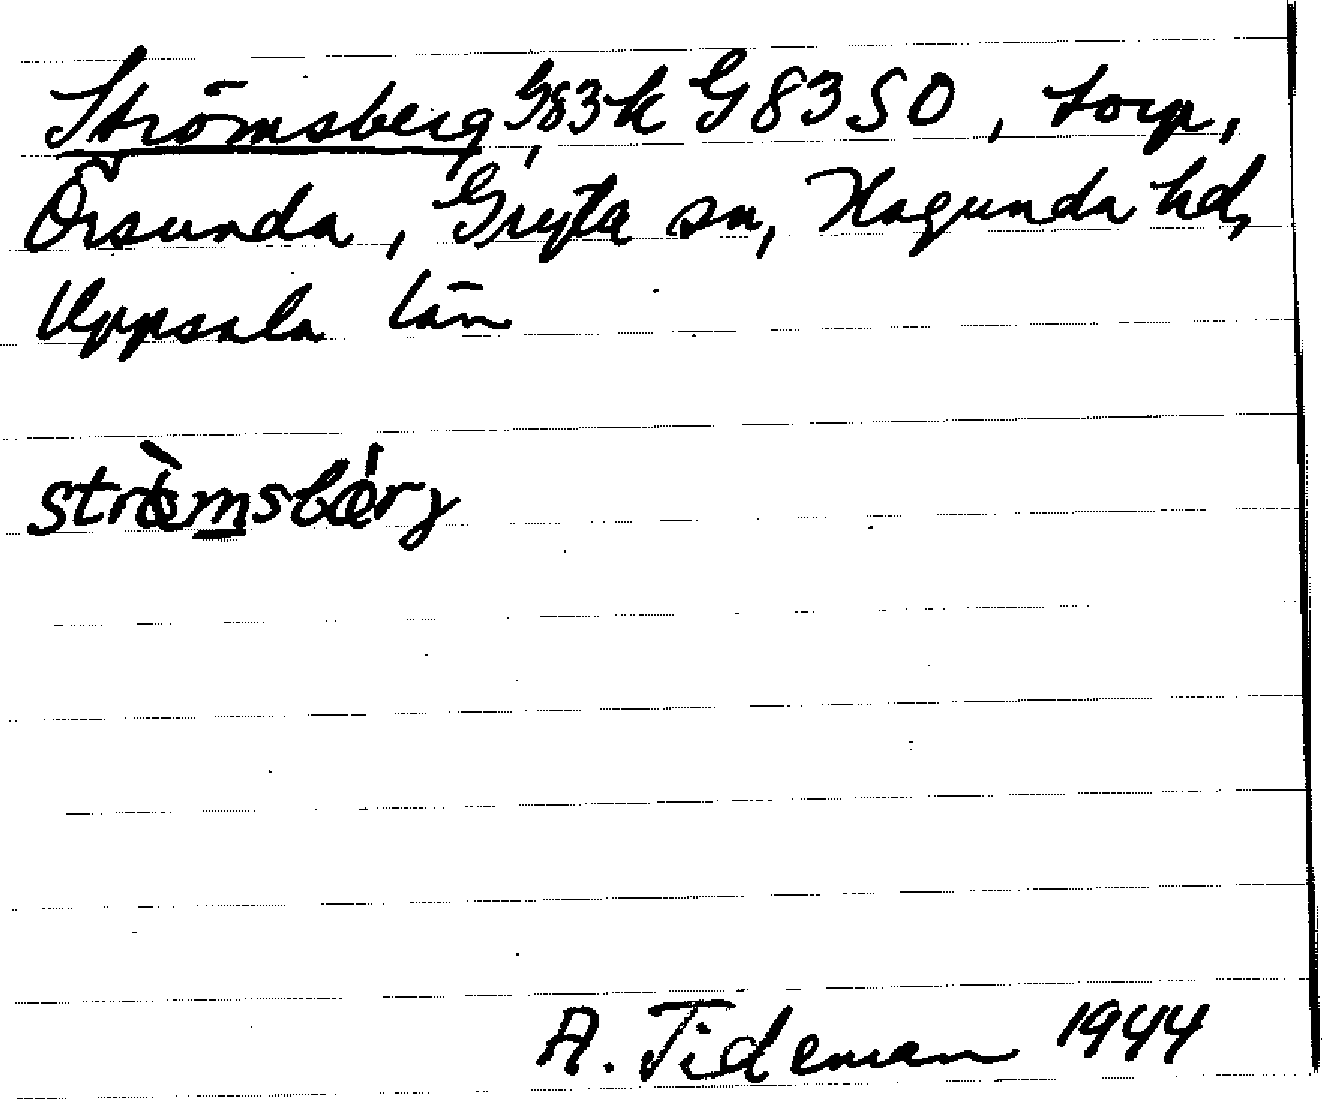 Strömsberg, G83k G83SO, torp,
Örsunda, Gryta sn, Hagunda hd,
Uppsala län
strømsbærj
A. Tideman 1944